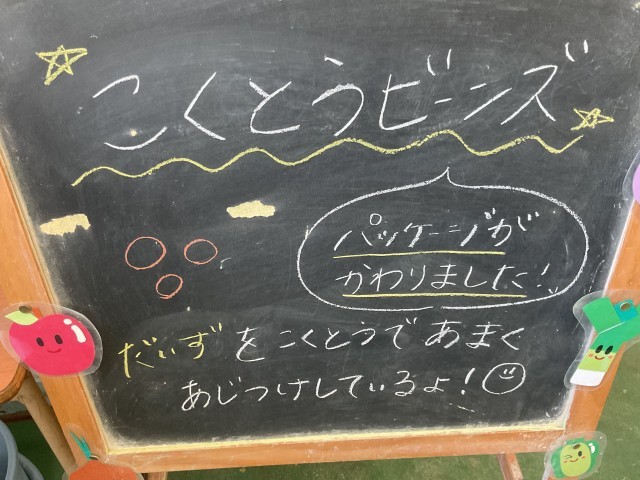 こくとうビーンズ
パッケージが
かわりました!
だいずをこくとうであまく
あじつけしているよ!